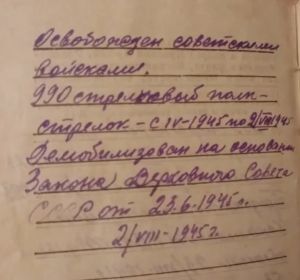 Освобожден советскими
войсками.
990 стрелковый полк-
стрелок - с IV-1945 по 2/VIII 1945
Демобилизован на основании
Закона Верховного Совета
СССР от 23.6.1945 г.
2/VIII-1945 г.